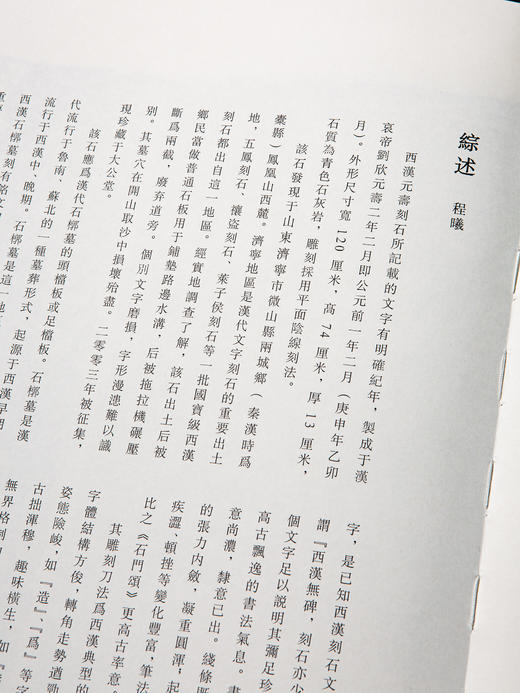 綜述
程曦
西漢元壽刻石所記載的文字有明確紀年，製成于漢
哀帝劉欣元壽二年二月即公元前一年二月（庚申年乙卯
月）。外形尺寸寬120厘米，高74厘米，厚13厘米，
石質為青色石灰岩，雕刻採用平面陰線刻法。
該石發現于山東濟寧市微山縣兩城鄉（秦漢時爲
橐縣）鳳凰山西麓。濟寧地區是漢代文字刻石的重要出土
地，五鳳刻石、禳盜刻石、萊子侯刻石等一批國寶級西漢
刻石都出自這一地區。經實地調查了解，該石出土后被
鄉民當做普通石板用于鋪墊路邊水溝，后被拖拉機碾壓
斷爲兩截，廢弃道旁。個別文字磨損，字形漫漶難以識
別。其墓穴在開山取沙中損壞殆盡。二零零三年被征集，
現珍藏于大公堂。
該石應爲漢代石槨墓的頭檔板或足檔板。石槨墓是漢
代流行于魯南、蘇北的一種墓葬形式，起源于西漢早期
流行于西漢中、晚期。石槨墓是這一地
西漢石槨墓刻有銘文
字，是已知西漢刻石文
謂『西漢無碑，刻石亦少
個文字足以説明其彌足珍
高古飄逸的書法氣息。書
意尚濃，隸意已出。綫條
的張力内斂，凝重圓渾；起
疾澀、頓挫等變化豐富，筆法
比之《石門頌》更高古率意。
其雕刻刀法爲西漢典型的
字體結構方俊，轉角走勢遒勁
姿態險峻，如『造』『爲』等字
古拙渾穆，趣味橫生，如
無界格刻